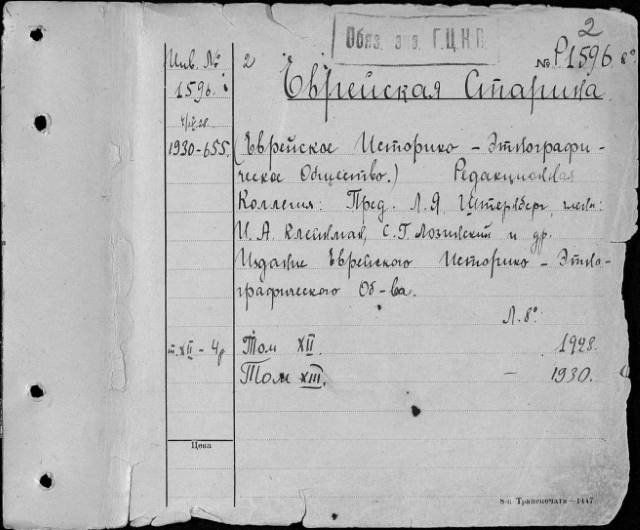 2
Обяз. экз. Г.Ц.К.П.
Инв. № 2 № Р1596 8°
1596.
Еврейская Старина
1930-655. (Еврейское Историко - Этнографи-
ческое Общество.) Редакционная
Коллегия: Пред. Л. Я. Штернберг, члены:
И. А. Клейнман, С. Г. Лозинский и др.
Издание Еврейского Историко - Этно-
графического Об-ва.
Л. 8°
т. XII - 4р Том XII. 1928.
Том XIII. - 1930.
Цена
8-я Транспечати—1447